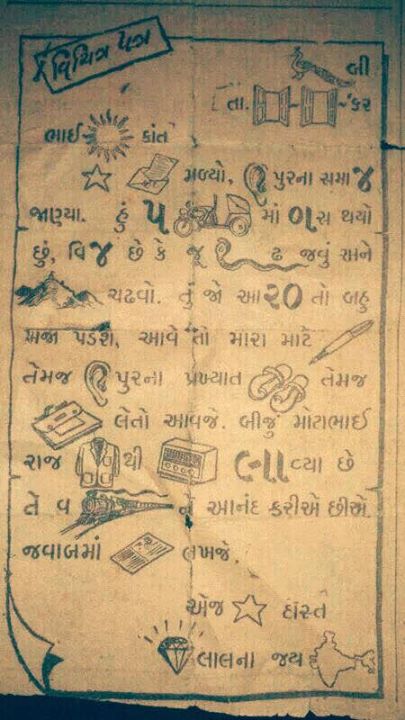 વિચિત્ર પત્ર
બી
તા. - -કર
ભાઈ કાંત
મળ્યો, પુરના સમા૪
જાણ્યા. હું ૫ માં ૦ાસ થયો
છું, વિ૪ છે કે જૂ ઢ જવું અને
ચઢવો. તું જો આ૨૦ તો બહુ
મજા પડશે, આવે તો મારા માટે
તેમજ પુરના પ્રખ્યાત તેમજ
લેતો આવજે. બીજું મોટાભાઈ
રાજ થી ૯-ાાવ્યા છે
તે વ ને આનંદ કરીએ છીએ.
જવાબમાં લખજે.
એજ દોસ્ત
લાલના જય